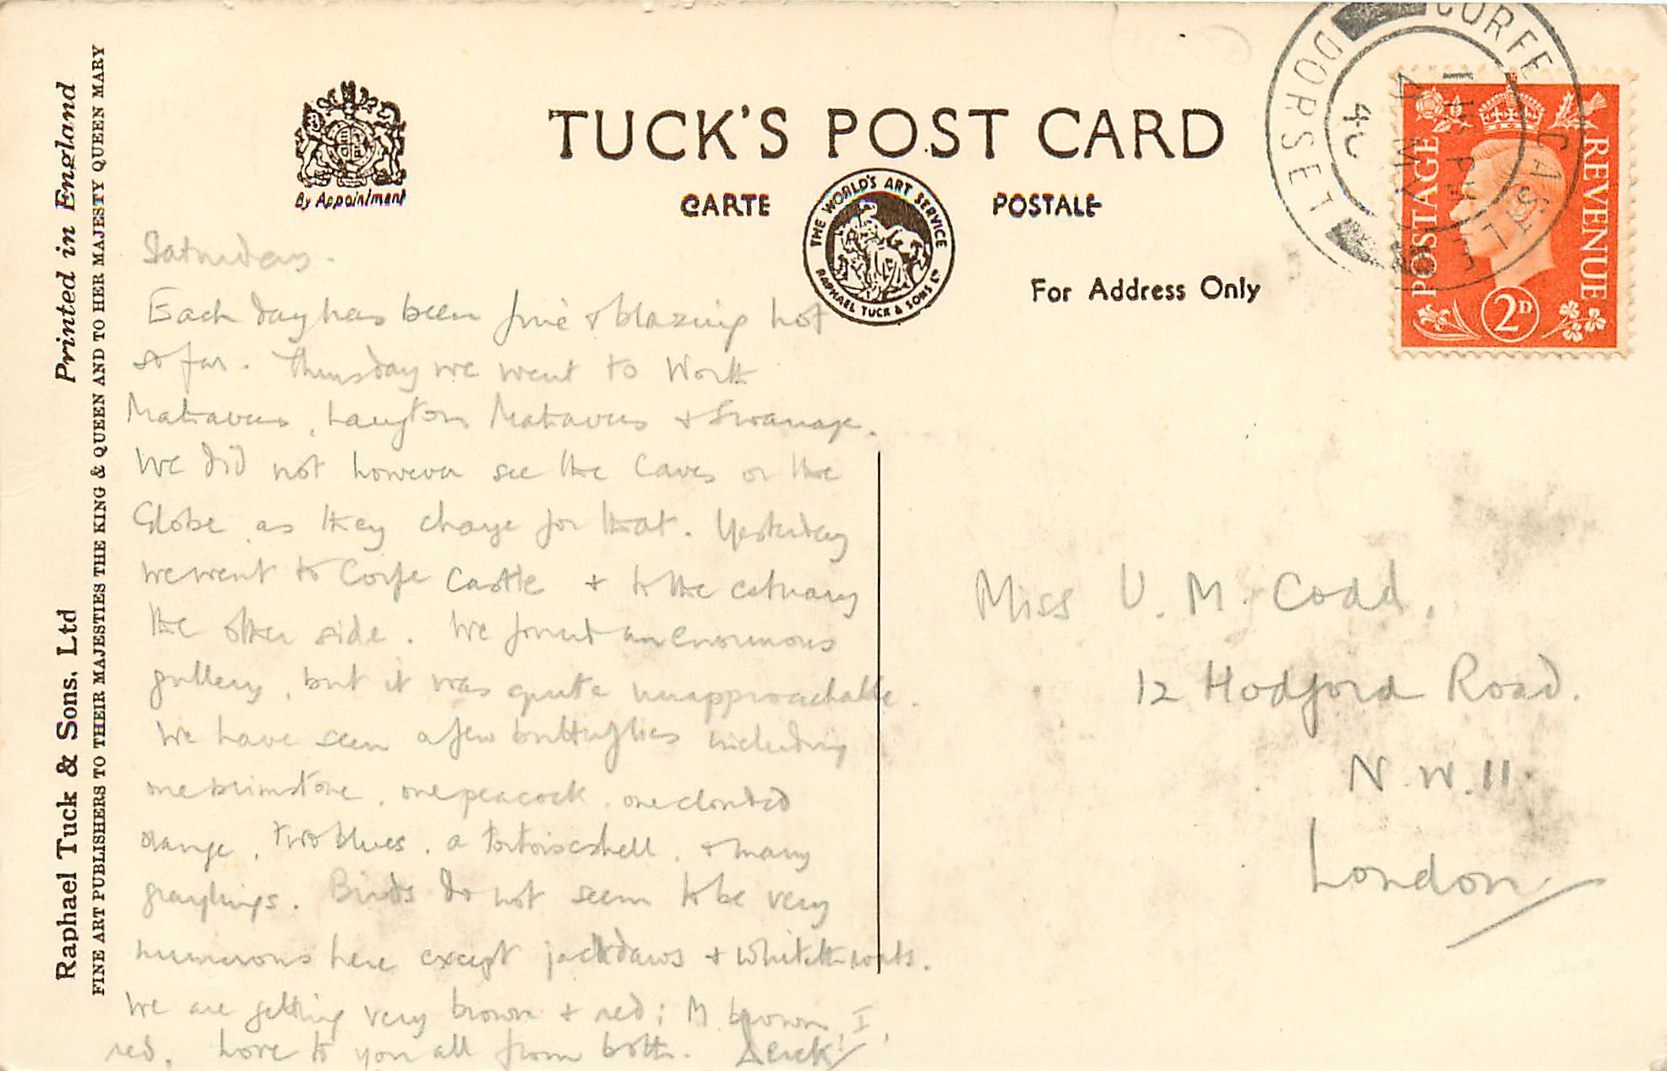 Raphael Tuck & Sons, Ltd Printed in England
FINE ART PUBLISHERS TO THEIR MAJESTIES THE KING & QUEEN AND TO HER MAJESTY QUEEN MARY
By Appointment
TUCK'S POST CARD
CARTE POSTALE
THE WORLD'S ART SERVICE
RAPHAEL TUCK & SONS LTD
For Address Only
CORFE CASTLE
DORSET
PM
4 MY
40
POSTAGE REVENUE
2D
Saturday.
Each day has been fine & blazing hot
so far. Thursday we went to Worth
Matravers, Langton Matravers & Swanage.
We did not however see the Caves or the
Globe as they charge for that. Yesterday
we went to Corfe Castle & to the estuary
the other side. We found an enormous
gullery, but it was quite unapproachable.
We have seen a few butterflies including
one brimstone, one peacock, one clouded
orange, two blues, a tortoiseshell, & many
graylings. Birds do not seem to be very
numerous here except jackdaws & whitethroats.
We are getting very brown & red; M brown, I,
red. Love to you all from both.
Miss U. M. Codd.
12 Hodford Road.
N.W.11.
London